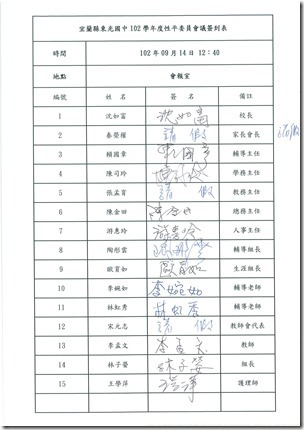 宜蘭縣東光國中 102 學年度性平委員會議簽到表
時間 102 年 09 月 14 日 12:40
地點 會報室
編號 姓名 簽名 備註
1 沈如富 沈如富 校長
2 秦榮權 請假 家長會長 請假
3 賴國章 輔導主任
4 陳司玲 學務主任
5 張孟育 請假 教務主任
6 陳金田 總務主任
7 游惠玲 游惠玲 人事主任
8 陶彤雲 輔導組長
9 歐育如 歐育如 生涯組長
10 李婉如 李婉如 輔導老師
11 林虹秀 林虹秀 輔導老師
12 宋元志 請假 教師會代表
13 李孟文 李孟文 教師
14 林子嫈 林子嫈 組長
15 王學萍 護理師